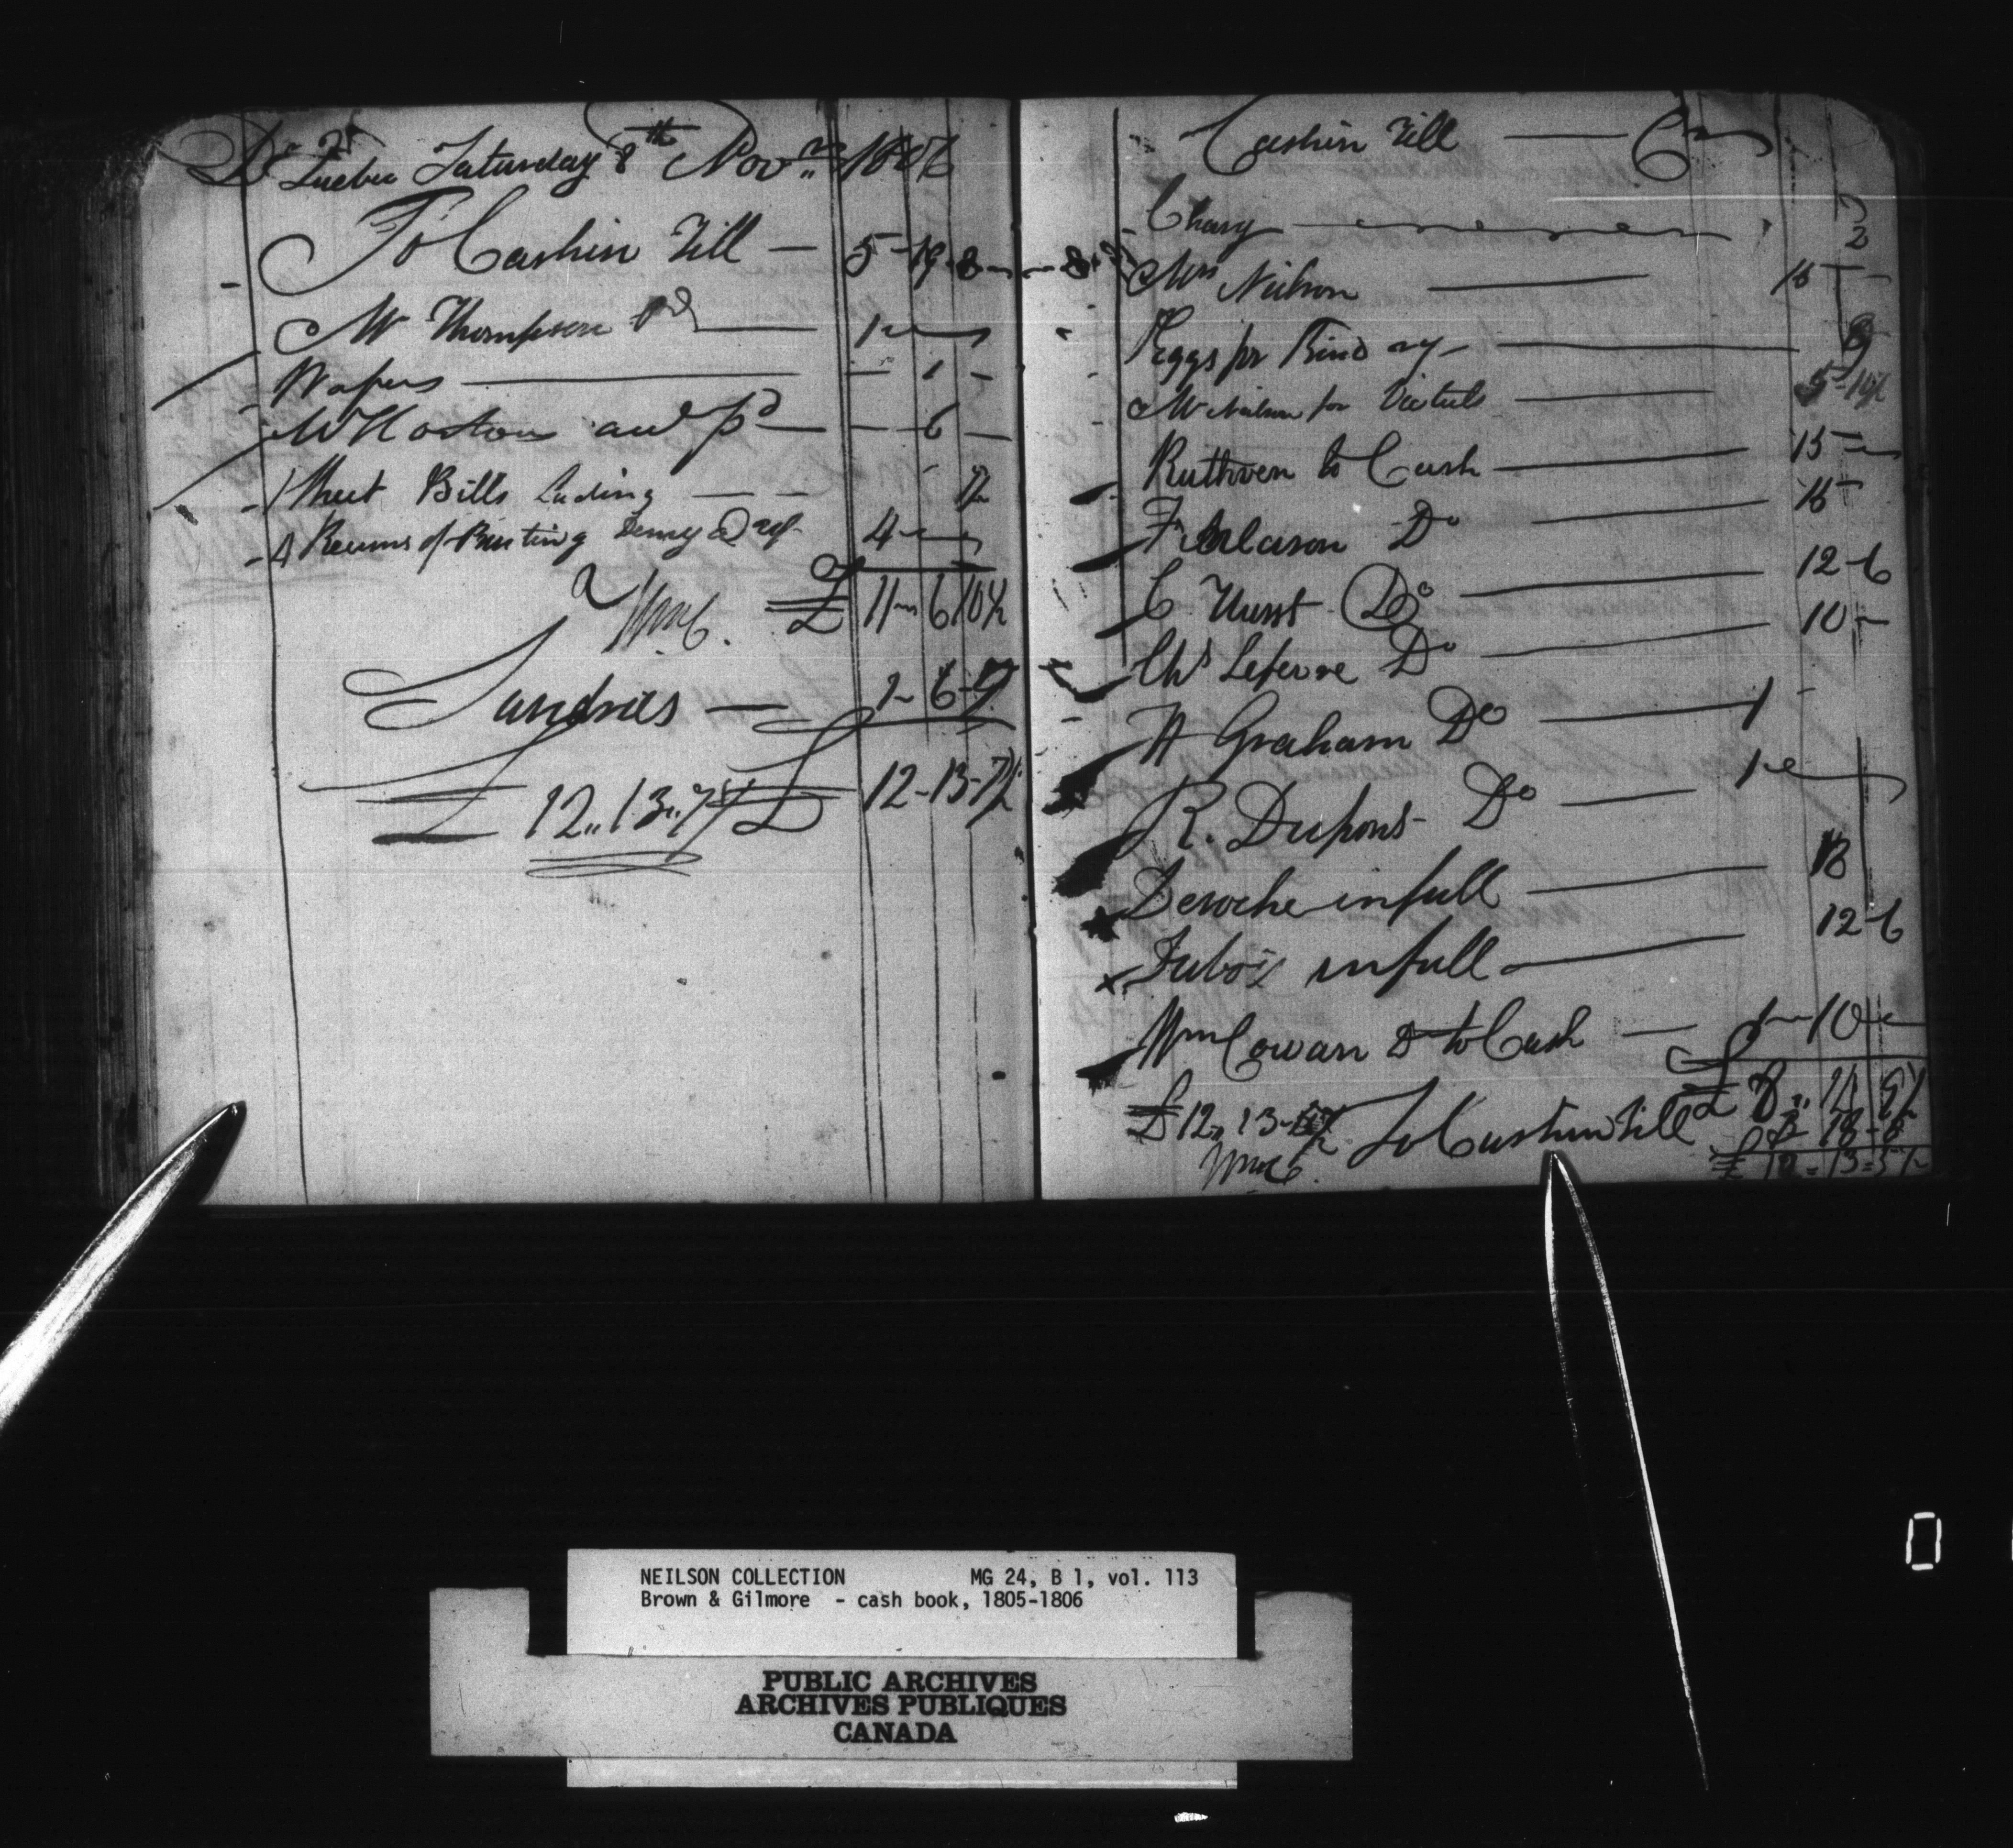 Dr Quebec Saturday 8th Novr 1806
To Cash in Till — 5 - 19 - 8
Mr Thompson pd — 1 -
Wafers — 1 -
W Horton adv pd — 6 -
1 Sheet Bills Lading — — 2½
4 Reams of Printing Demy @ 20/- 4 -
£ 11 - 6 10½
WmC.
Sundries — 1 - 6 - 9
£ 12 - 13 - 7½
£ 12 .. 13 .. 7½
Cash in Till — Cr
Chary — 2
Mrs Neilson — 15 -
Eggs for Bindery — 9
Mr Neilson for Victuals — 5 - 10½
Ruthven to Cash — 15 -
Do — 15 -
C. Hurst Do — 12 - 6
Chs Lefevre Do — 10 -
W Graham Do — 1 -
R. Dupont Do — 1 -
Deroche in full — 18
Dubois in full — 12 - 6
Wm Cowan Dr to Cash — 1 - 10 -
£ 8 .. 15
£ 12 .. 13 - To Cash in till
WmC.
£ 12 = 13 = 5½
NEILSON COLLECTION MG 24, B 1, vol. 113
Brown & Gilmore - cash book, 1805-1806
PUBLIC ARCHIVES
ARCHIVES PUBLIQUES
CANADA